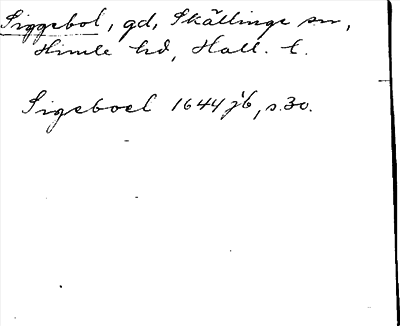 Siggebol, gd, Skällinge sn,
Himle hd, Hall. l.
Sigeboel 1644 jb, s. 30.